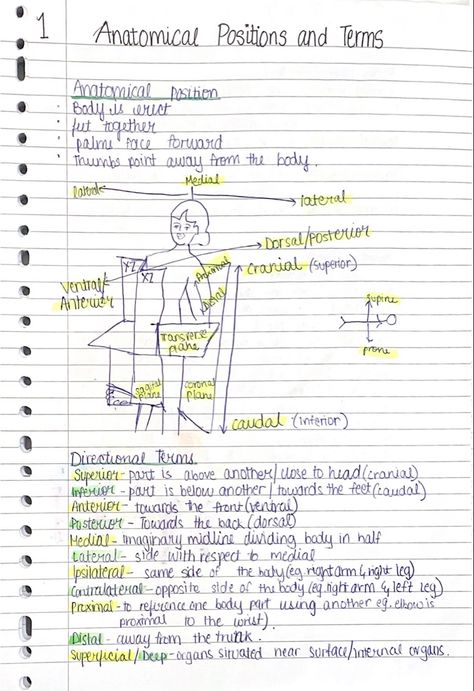 1
Anatomical Positions and Terms
Anatomical Position
· Body is erect
· feet together
· palms face forward
· thumbs point away from the body.
Medial
lateral
lateral
Dorsal/Posterior
Cranial (superior)
Proximal
Distal
YZ
XZ
Ventral/
Anterior
Transverse
plane
supine
prone
sagital
plane
coronal
plane
caudal (inferior)
Directional Terms
Superior - part is above another/close to head (cranial)
Inferior - part is below another/towards the feet (caudal)
Anterior - towards the front (ventral)
Posterior - Towards the back (dorsal)
Medial - Imaginary midline dividing body in half
Lateral - side with respect to medial
Ipsilateral - same side of the body (eg. right arm & right leg)
Contralateral - opposite side of the body (eg. right arm & left leg)
Proximal - to reference one body part using another eg. elbow is
proximal to the wrist).
Distal - away from the trunk.
Superficial/Deep - organs situated near surface/internal organs.